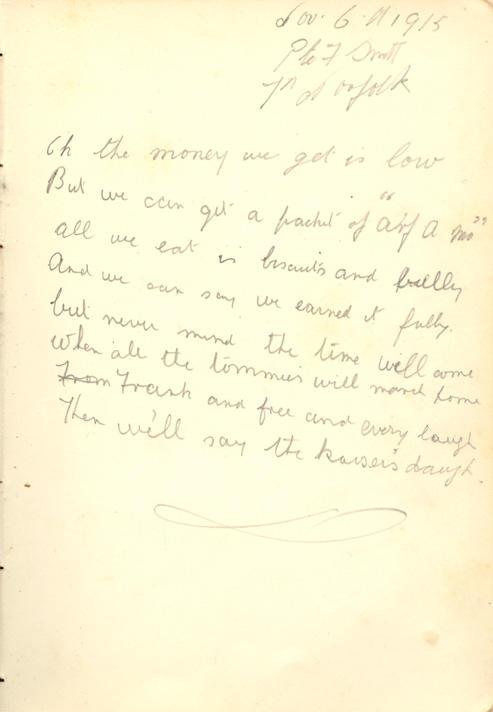 Nov. 6th 1915
Pte F Smith
7th Norfolk
Oh the money we get is low
But we can get a packet of "Arf A mo"
all we eat is biscuits and bully
And we can say we earned it fully.
but never mind the time will come
when all the tommies will march home
From Frank and free and every laugh
Then we'll say the Kaiser's daugh